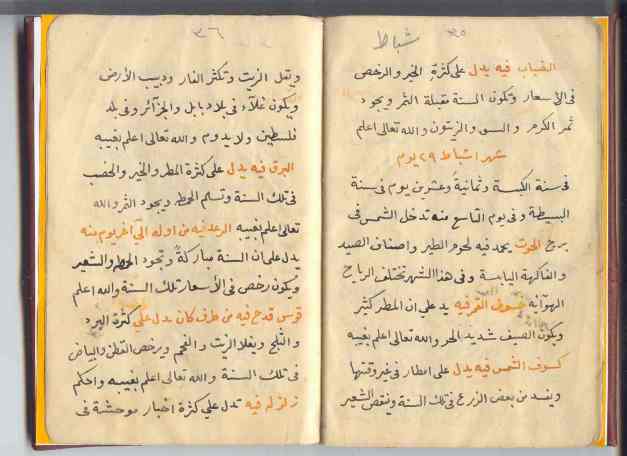 ٣٥
شباط
الضباب فيه يدل على كثرة الخير والرخص
في الأسعار وتكون السنة مقبلة الثمر ويجود
ثمر الكرم والزيتون والله تعالى اعلم
شهر اشباط ٢٩ يوم
في سنة الكبسة وثمانية وعشرين يوم في سنة
البسيطة وفي يوم التاسع منه تدخل الشمس في
برج الحوت يحمد فيه لحوم الطير واصناف الصيد
والفاكهة اليابسة وفي هذا الشهر تختلف الرياح
الهوائيه خسوف القمر فيه يدل على ان المطر كثير
ويكون الصيف شديد الحر والله تعالى اعلم بغيبه
كسوف الشمس فيه يدل على امطار في غير وقتها
ويفسد من بعض الزرع في تلك السنة وينقص الشعير
٣٦
ويقل الزيت وتكثر الفار ودبيب الأرض
ويكون غلآء في بلاد بابل والجزآئر وفي بلد
فلسطين ولا يدوم والله تعالى اعلم بغيبه
البرق فيه يدل على كثرة المطر والخير والخصب
في تلك السنة وتسلم الحنطه ويجود الثمر والله
تعالى اعلم بغيبه الرعد فيه من اوله الى آخر يوم منه
يدل على ان السنة مباركة وتجود الحنطه والشعير
ويكون رخص في الأسعار تلك السنة والله اعلم
قوس قدح فيه من طرف كان يدل على كثرة البرد
والثلج ويغلا الزيت والفحم ويرخص القطن والبياض
في تلك السنة والله تعالى اعلم بغيبه واحكم
زلزله فيه تدل على كثرة اخبار موحشة في